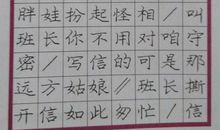 胖娃扮起怪相/叫
班长你不用对咱守
密/写信的可是那
远方姑娘//班长撕
开信如此匆忙/信